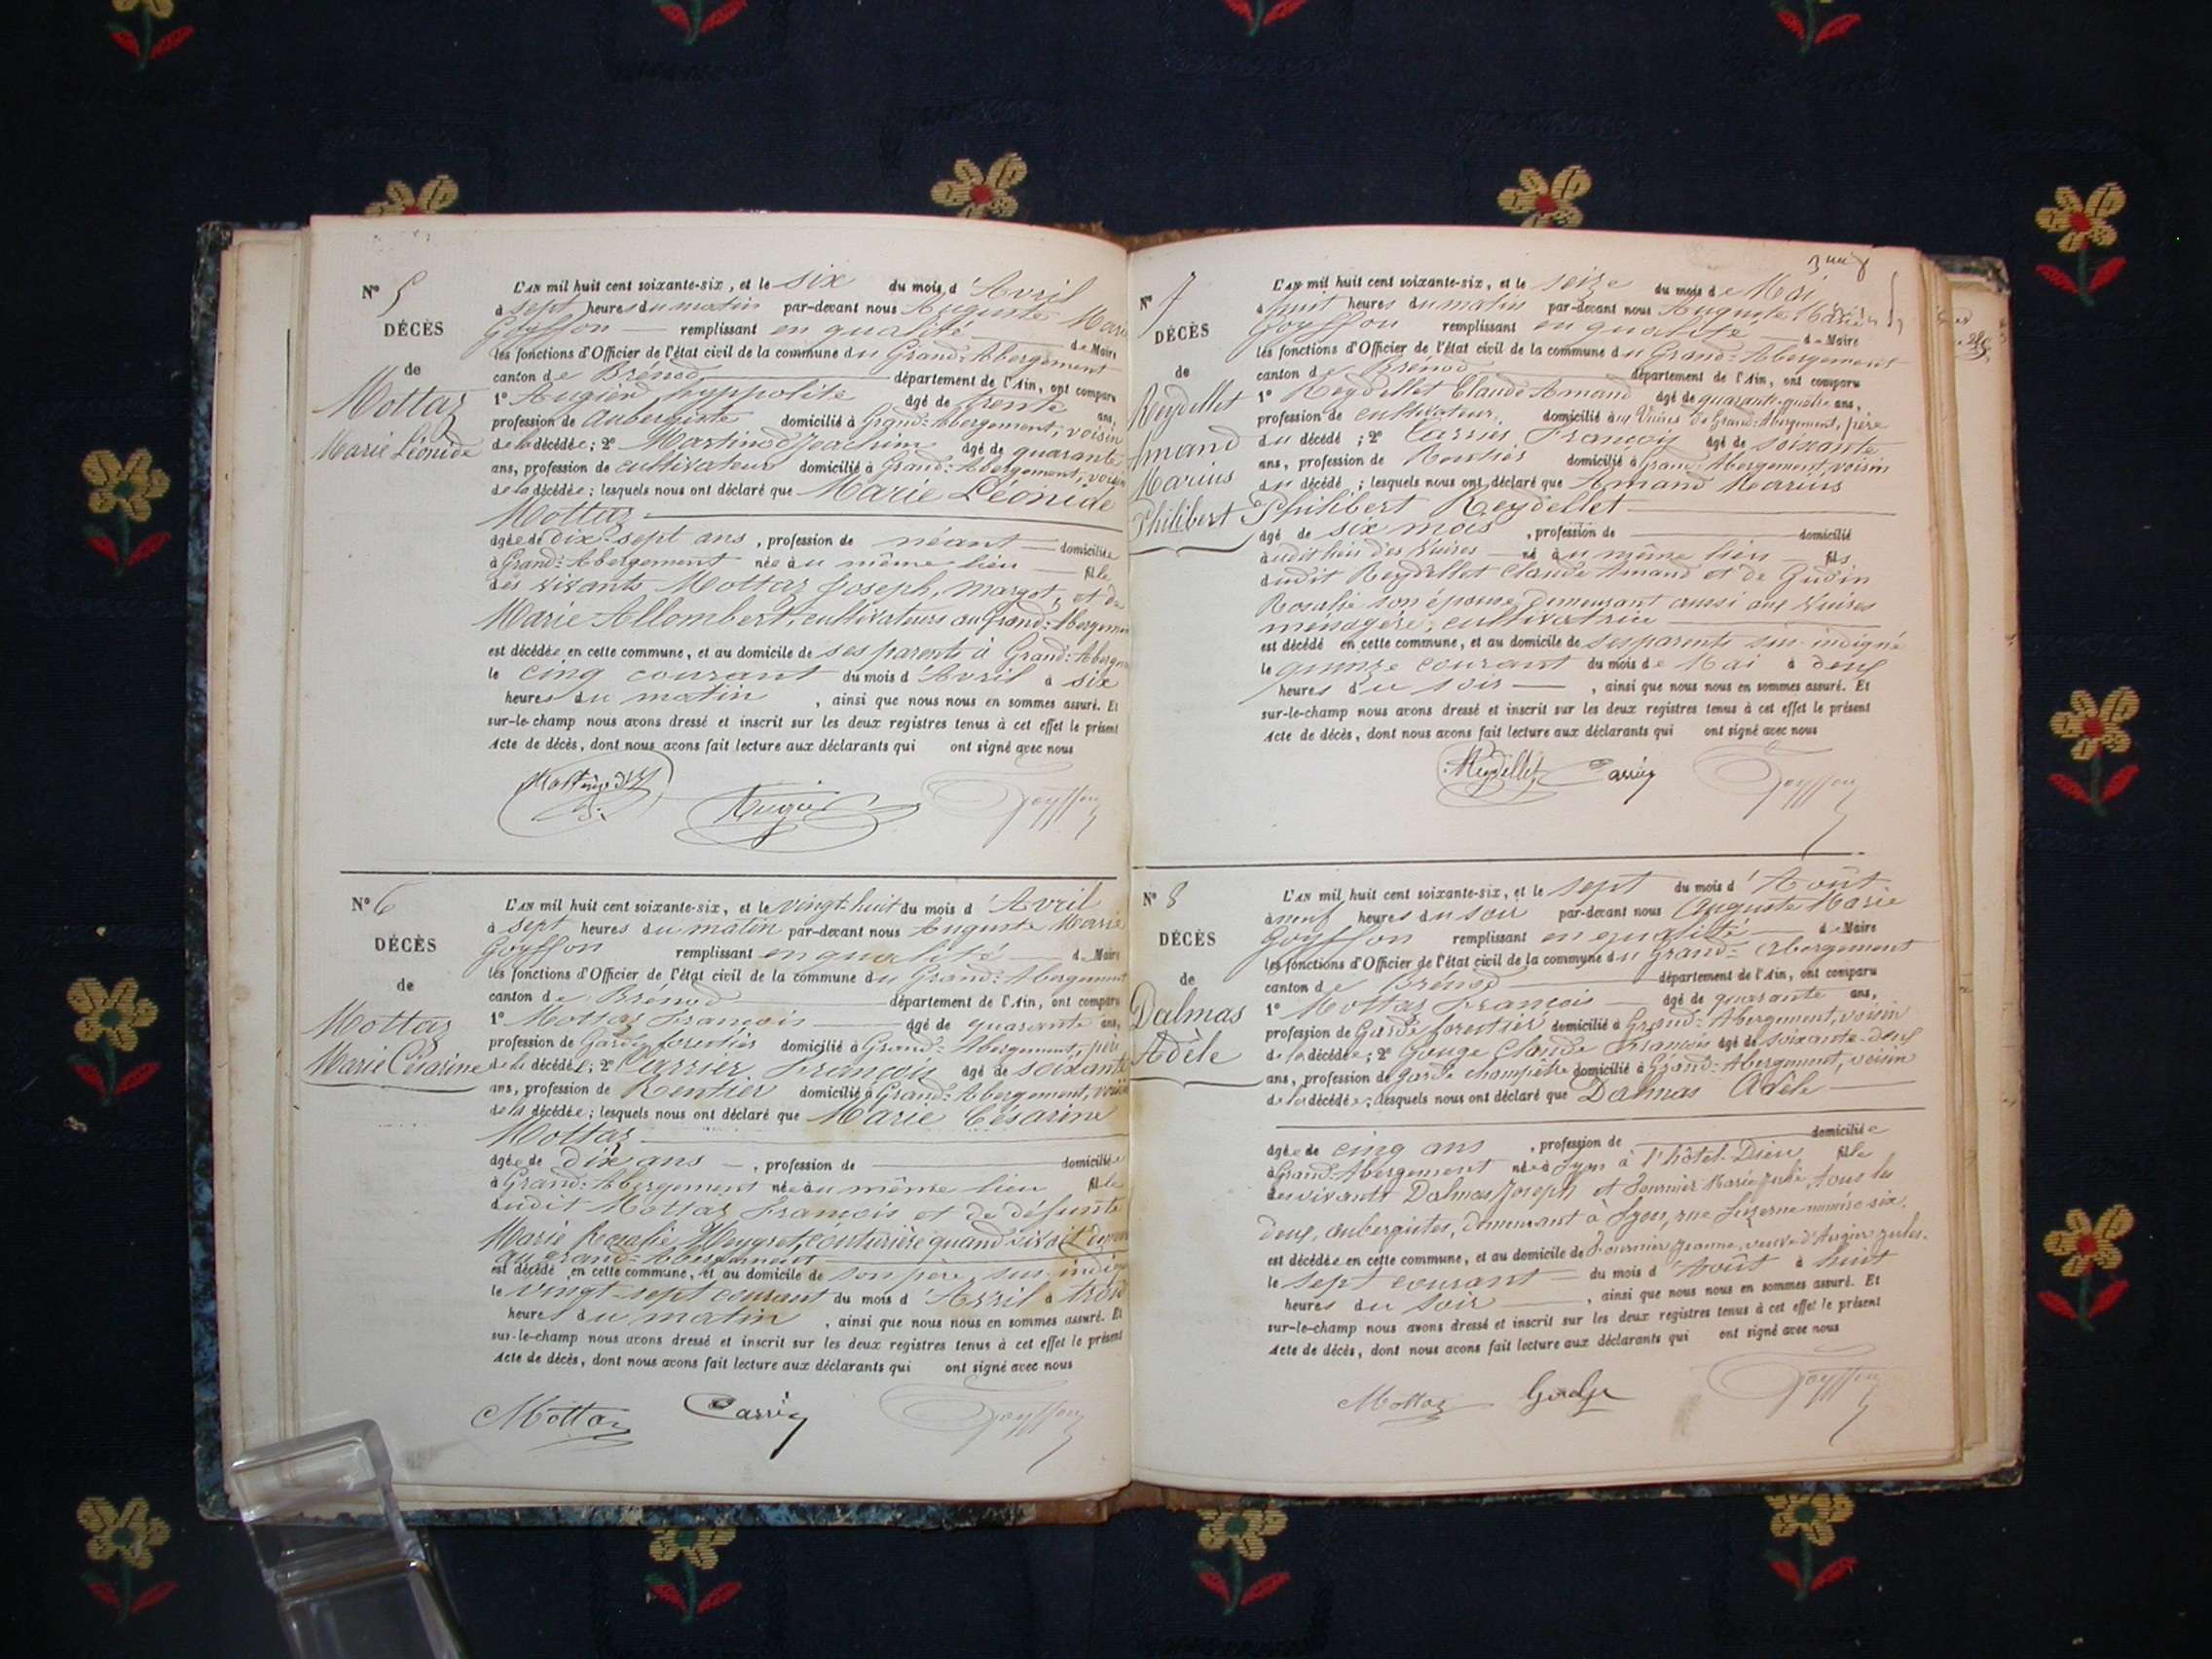 N° 5
DÉCÈS
de
Mottaz
Marie Léonide
L'AN mil huit cent soixante-six, et le six du mois d'Avril
à sept heures du matin par-devant nous Auguste Marie
Goyffon remplissant en qualité de Maire
les fonctions d'Officier de l'état civil de la commune du Grand-Abergement
canton de Brénod département de l'Ain, ont comparu
1° Augier hyppolite âgé de trente ans,
profession de aubergiste domicilié à Grand-Abergement, voisin
de la décédée; 2° Martinod Joachim âgé de quarante
ans, profession de cultivateur domicilié à Grand-Abergement, voisin
de la décédée; lesquels nous ont déclaré que Marie Léonide
Mottaz
âgée de dix-sept ans, profession de néant domiciliée
à Grand-Abergement née au même lieu fille
des vivants Mottaz Joseph, Margot, et de
Marie Allombert, cultivateurs au Grand-Abergemen
est décédée en cette commune, et au domicile de ses parents à Grand-Aberge
le cinq courant du mois d'Avril à six
heures du matin, ainsi que nous nous en sommes assuré. Et
sur-le-champ nous avons dressé et inscrit sur les deux registres tenus à cet effet le présent
Acte de décès, dont nous avons fait lecture aux déclarants qui ont signé avec nous
Augier Goyffon
N° 6
DÉCÈS
de
Mottaz
Marie Césarine
L'AN mil huit cent soixante-six, et le vingt-huit du mois d'Avril
à sept heures du matin par-devant nous Auguste Marie
Goyffon remplissant en qualité de Maire
les fonctions d'Officier de l'état civil de la commune du Grand-Abergement
canton de Brénod département de l'Ain, ont comparu
1° Mottaz François âgé de quarante ans,
profession de Garde forestier domicilié à Grand-Abergement, père
de la décédée; 2° Carrier François âgé de soixante
ans, profession de Rentier domicilié à Grand-Abergement, voisin
de la décédée; lesquels nous ont déclaré que Marie Césarine
Mottaz
âgée de dix ans, profession de domiciliée
à Grand-Abergement née au même lieu fille
dudit Mottaz François et de défunte
Marie Rosalie Meygret, couturière quand vivait
au Grand-Abergement
est décédé en cette commune, et au domicile de son père, sus-indiq
le vingt-sept courant du mois d'Avril à trois
heures du matin, ainsi que nous nous en sommes assuré. Et
sur-le-champ nous avons dressé et inscrit sur les deux registres tenus à cet effet le présent
Acte de décès, dont nous avons fait lecture aux déclarants qui ont signé avec nous
Mottaz Carrier Goyffon
N° 7
DÉCÈS
de
Reydellet
Amand
Marius
Philibert
L'AN mil huit cent soixante-six, et le seize du mois de Mai
à huit heures du matin par-devant nous Auguste Marie
Goyffon remplissant en qualité de Maire
les fonctions d'Officier de l'état civil de la commune du Grand-Abergement
canton de Brénod département de l'Ain, ont comparu
1° Reydellet Claude Amand âgé de quarante-quatre ans,
profession de cultivateur, domicilié aux Vuires de Grand-Abergement, père
du décédé; 2° Carrier François âgé de soixante
ans, profession de Rentier domicilié à Grand-Abergement, voisin
du décédé; lesquels nous ont déclaré que Amand Marius
Philibert Reydellet
âgé de six mois, profession de domicilié
audit lieu des Vuires né au même lieu fils
dudit Reydellet Claude Amand et de Gudin
Rosalie son épouse, demeurant aussi aux Vuires
ménagère, cultivatrice
est décédé en cette commune, et au domicile de ses parents sus-indiqué
le quinze courant du mois de Mai à deux
heures du soir, ainsi que nous nous en sommes assuré. Et
sur-le-champ nous avons dressé et inscrit sur les deux registres tenus à cet effet le présent
Acte de décès, dont nous avons fait lecture aux déclarants qui ont signé avec nous
Reydellet Carrier Goyffon
N° 8
DÉCÈS
de
Dalmas
Adèle
L'AN mil huit cent soixante-six, et le sept du mois d'Août
à neuf heures du soir par-devant nous Auguste Marie
Goyffon remplissant en qualité de Maire
les fonctions d'Officier de l'état civil de la commune du Grand-Abergement
canton de Brénod département de l'Ain, ont comparu
1° Mottaz François âgé de quarante ans,
profession de Garde forestier domicilié à Grand-Abergement, voisin
de la décédée; 2° Gouge Claude François âgé de soixante-deux
ans, profession de garde champêtre domicilié à Grand-Abergement, voisin
de la décédée; lesquels nous ont déclaré que Dalmas Adèle
âgée de cinq ans, profession de domiciliée
à Grand-Abergement née à Lyon à l'hôtel-Dieu fille
des vivants Dalmas Joseph et Fournier Marie Julie, tous les
deux, aubergistes, demeurant à Lyon, rue Luzerne numéro six.
est décédée en cette commune, et au domicile de Fournier Jeanne, veuve d'Augier Jules.
le sept courant du mois d'Août à huit
heures du soir, ainsi que nous nous en sommes assuré. Et
sur-le-champ nous avons dressé et inscrit sur les deux registres tenus à cet effet le présent
Acte de décès, dont nous avons fait lecture aux déclarants qui ont signé avec nous
Mottaz Goyffon